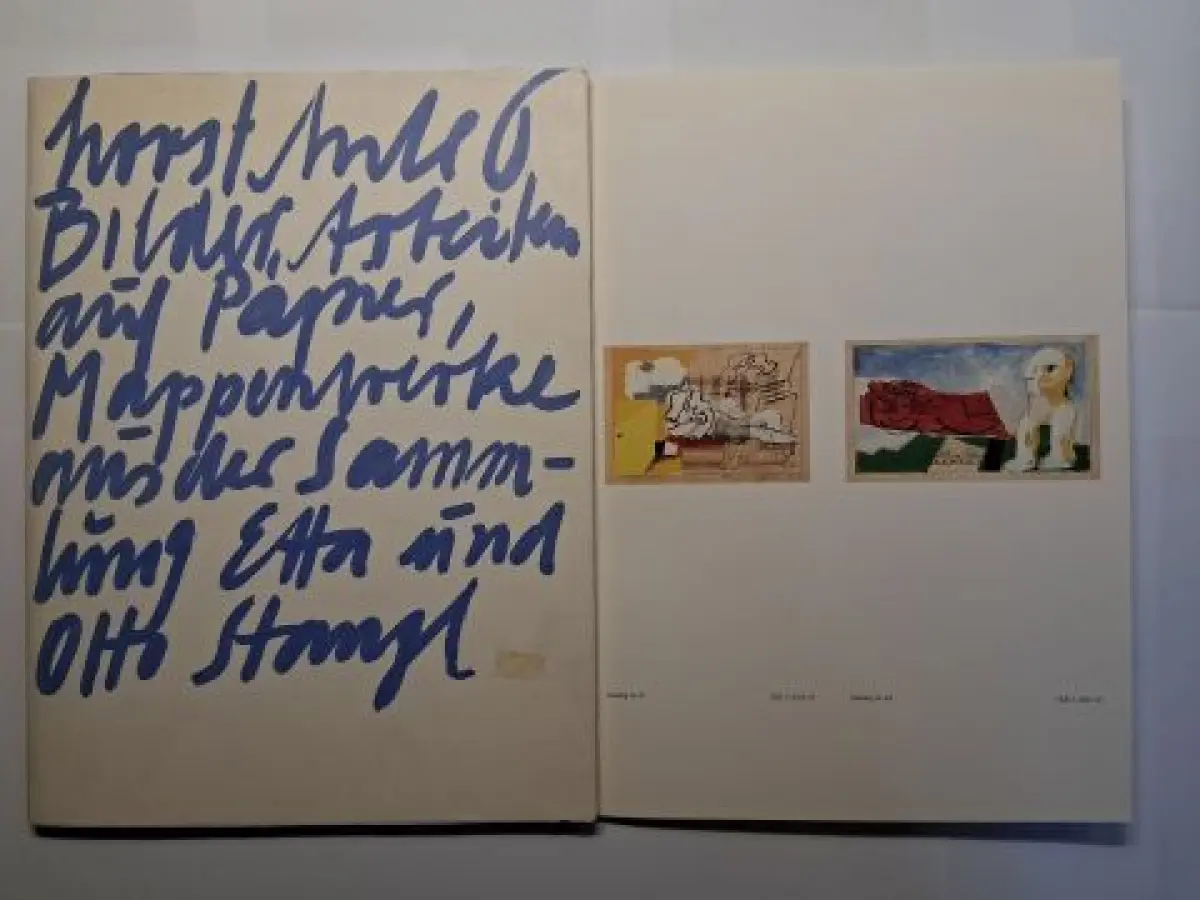 horst Antes
Bilder, Arbeiten
auf Papier,
Mappenwerke
aus der Samm-
lung Etta und
Otto Stangl